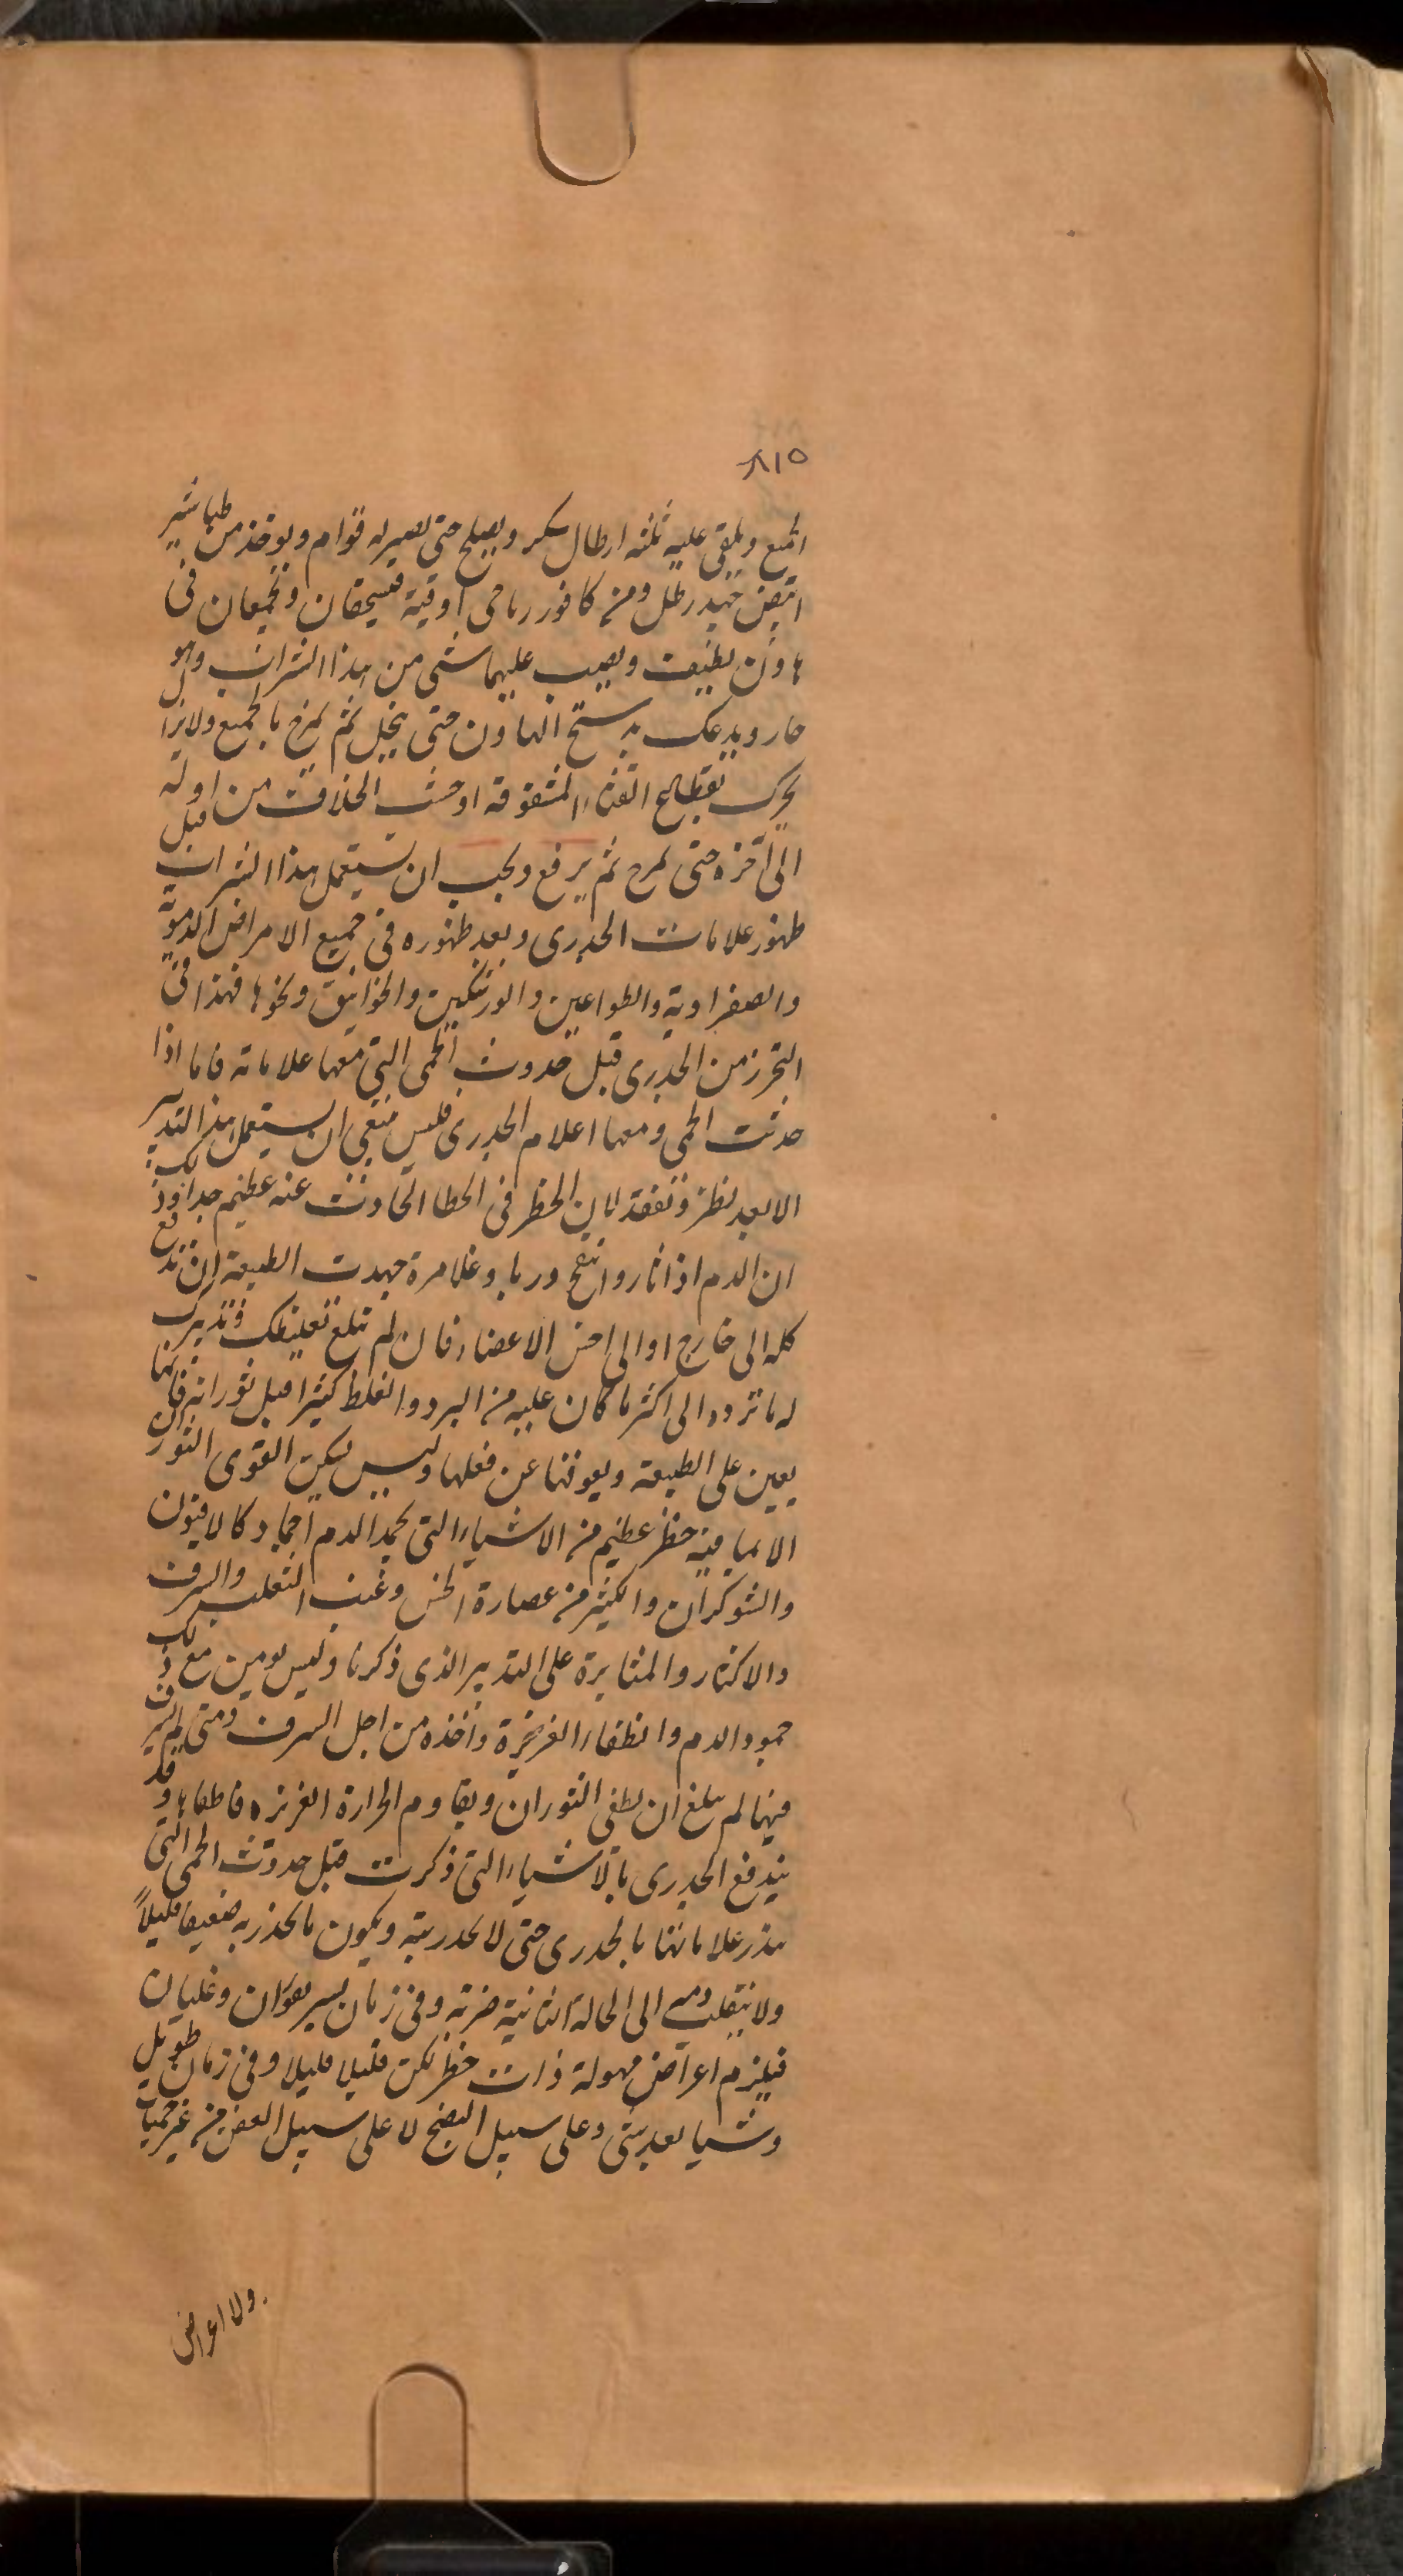 ٨١٥
الجميع ويلقى عليه ثلثه ارطال سكر ويطبخ حتى يصير له قوام ويوخذ من طباشير
ابيض جيد رطل ومن كافور رباحى اوقية فيسحقان ويجمعان فى
هاون نظيف ويصب عليهما شى من هذا الشراب وهو
حار ويدعك بدستج الهاون حتى ينحل ثم يمزج بالجميع ولايزال
يحرك بقطاع القنا المشقوقة او خشب الخلاف من اوله
الى آخره حتى يمزج ثم يرفع ويجب ان يستعمل هذا الشراب قبل
ظهور علامات الجدرى وبعد ظهوره فى جميع الامراض الدموية
والصفراوية والطواعين والورشكين والخوانيق ونحوها فهذا فى
التحرز من الجدرى قبل حدوث الحمى التى معها علاماته فاما اذا
حدثت الحمى ومعها اعلام الجدرى فليس ينبغى ان يستعمل هذا التدبير
الا بعد نظر وتفقد لان الخطر فى الخطا الحادث عنه عظيم جدا وذلك
ان الدم اذا ثار وانتفخ وربا وغلا مرة جهدت الطبيعة ان تدفع
كله الى خارج او الى احد الاعضاء فان لم تبلغ تغليظك وتبريدك
له ما ترده الى اكثر ما كان عليه من البرد والغلظ كثيرا قبل ثورانه فانها
يعين على الطبيعة ويعوقها عن فعلها وليس يسكن القوى الثوران
الا بما فيه خطر عظيم من الاشياء التى تجمد الدم اجماد كالافيون
والشوكران والكثير من عصارة الخس وعنب الثعلب والسرف
والاكثار والمثابرة على التدبير الذى ذكرنا وليس يومن مع ذلك
جمود الدم وانطفاء الغريزة واخذه من اجل السرف ومتى لم يسرف
فيها لم يبلغ ان يطفى الثوران ويقاوم الحرارة الغريزه فاطفاها وقد
يندفع الجدرى بالاشياء التى ذكرت قبل حدوث الحمى التى
ينذر علاماتها بالجدرى حتى لا يحدر بته ويكون ما يحذر به ضعيفا قليلاً
ولا ينقلب دمه الى الحالة الثانية ضربة وفى زمان يسير بفوران وغليان
فيلزم اعراض مهولة ذات خطر لكن قليلا قليلا وفى زمان طويل
وشيا بعد شى وعلى سبيل النضج لا على سبيل العفن من غير حميات
ولا اعراض